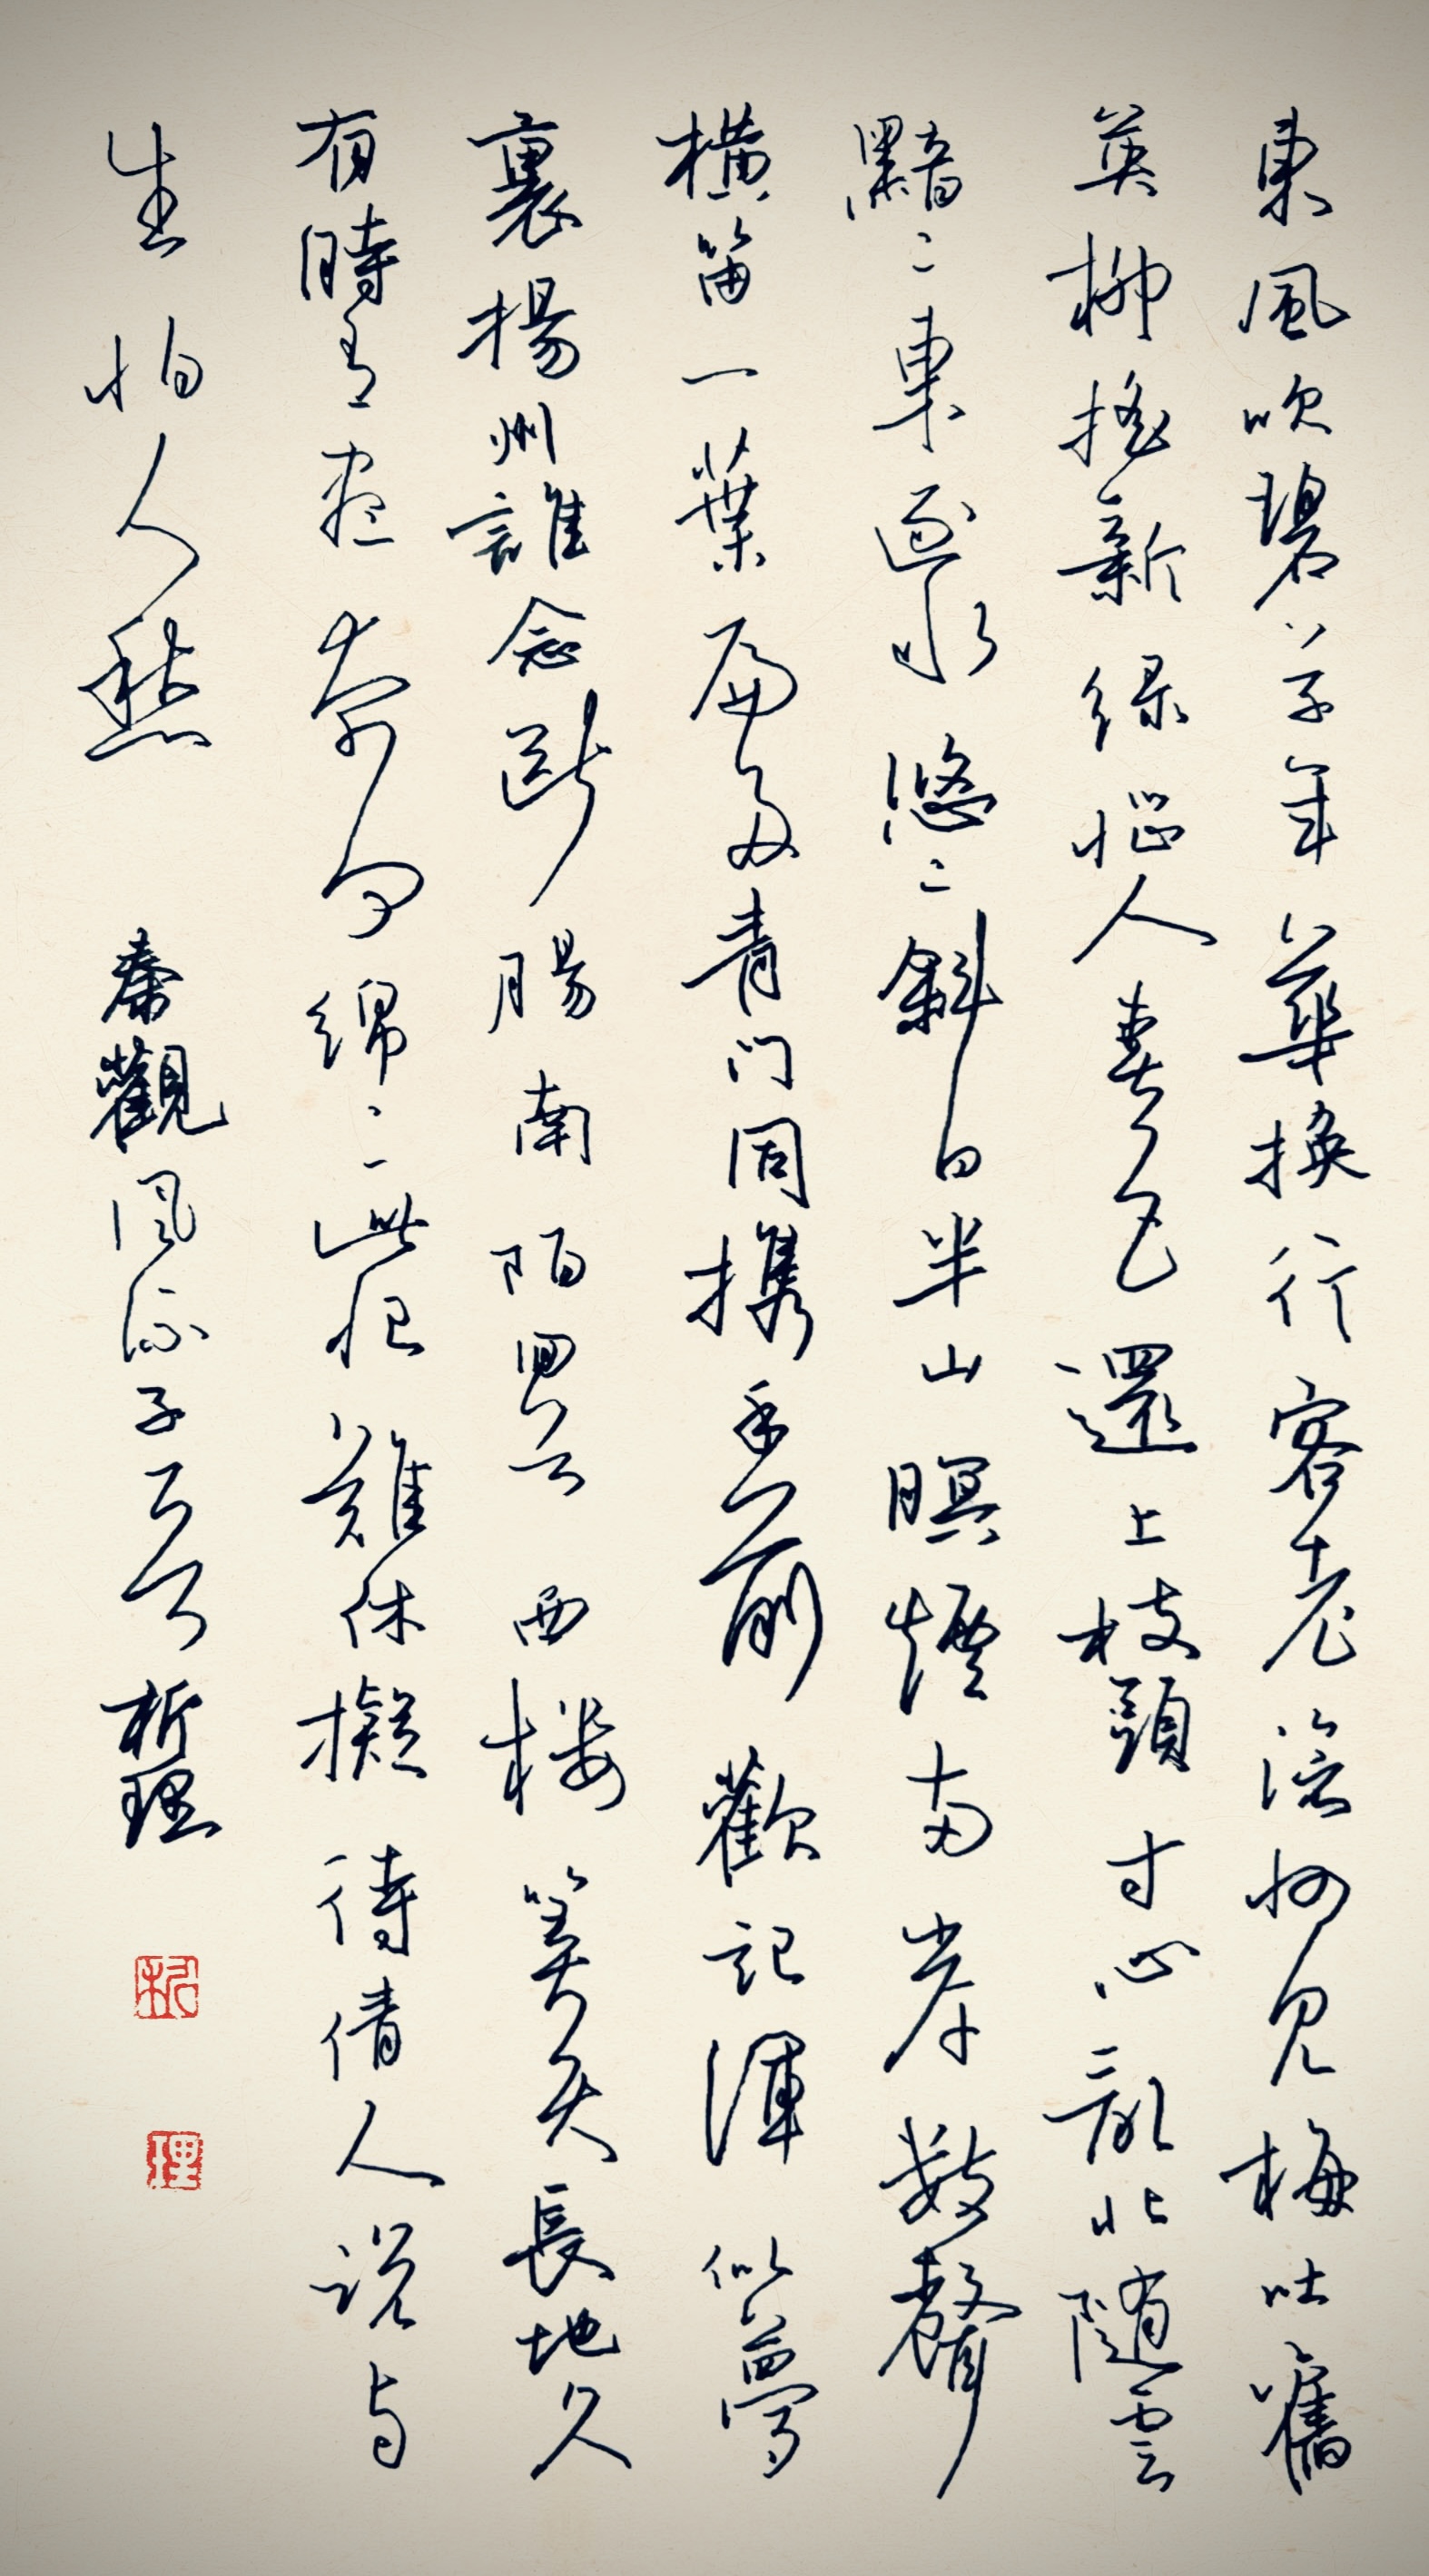 東風吹碧草年華換行客老滄洲見梅吐舊
英柳搖新綠惱人春色還上枝頭寸心亂北隨雲
黯〻東逐水悠〻斜日半山暝煙兩岸數聲
橫笛一葉扁舟青門同携手前歡記渾似夢
裏揚州誰念斷腸南陌回首西楼算天長地久
有時有盡奈何綿〻此恨難休擬待倩人説与
生怕人愁 秦觀風流子一首 析理
析
理